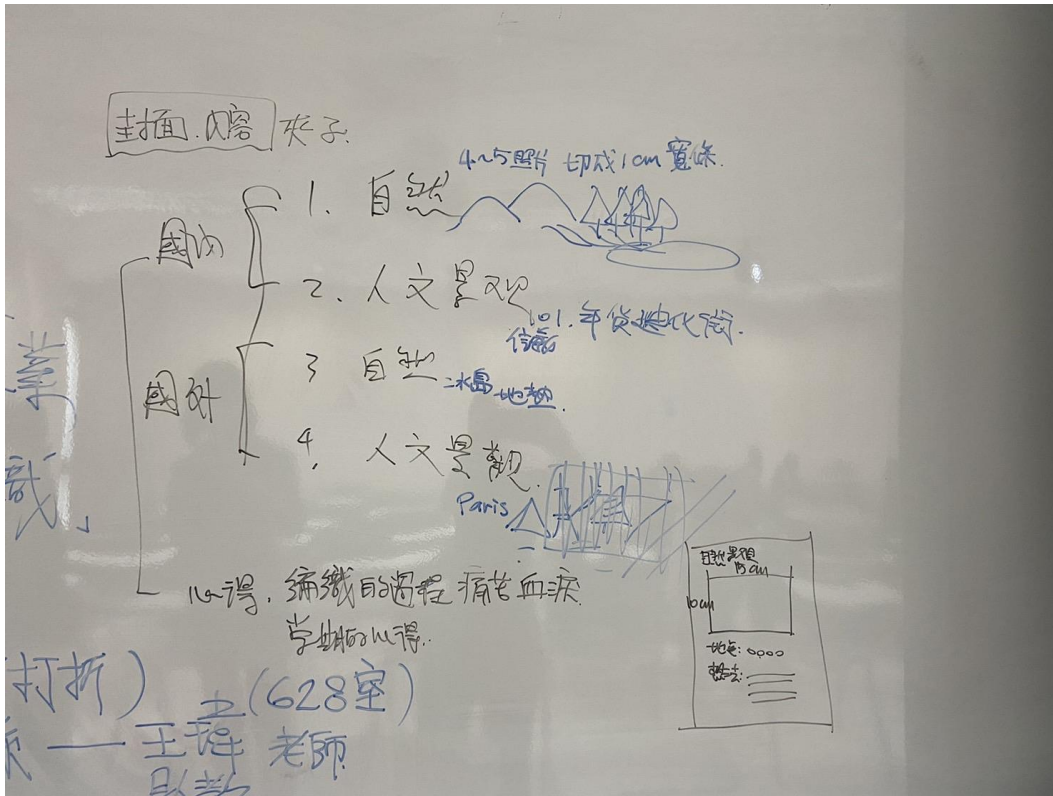 封面.內容 夾子.
4~5照片 切成1cm 寬條.
國內
1. 自然
2. 人文景观
101. 年货 迪化街.
信義
國外
3 自然
冰島 地熱.
4. 人文景觀.
Paris
心得. 編織的過程 痛苦血淚
學期的心得.
自然景觀
15cm
10cm
地點:○○○○
想法:
(打折)
(628室)
老師